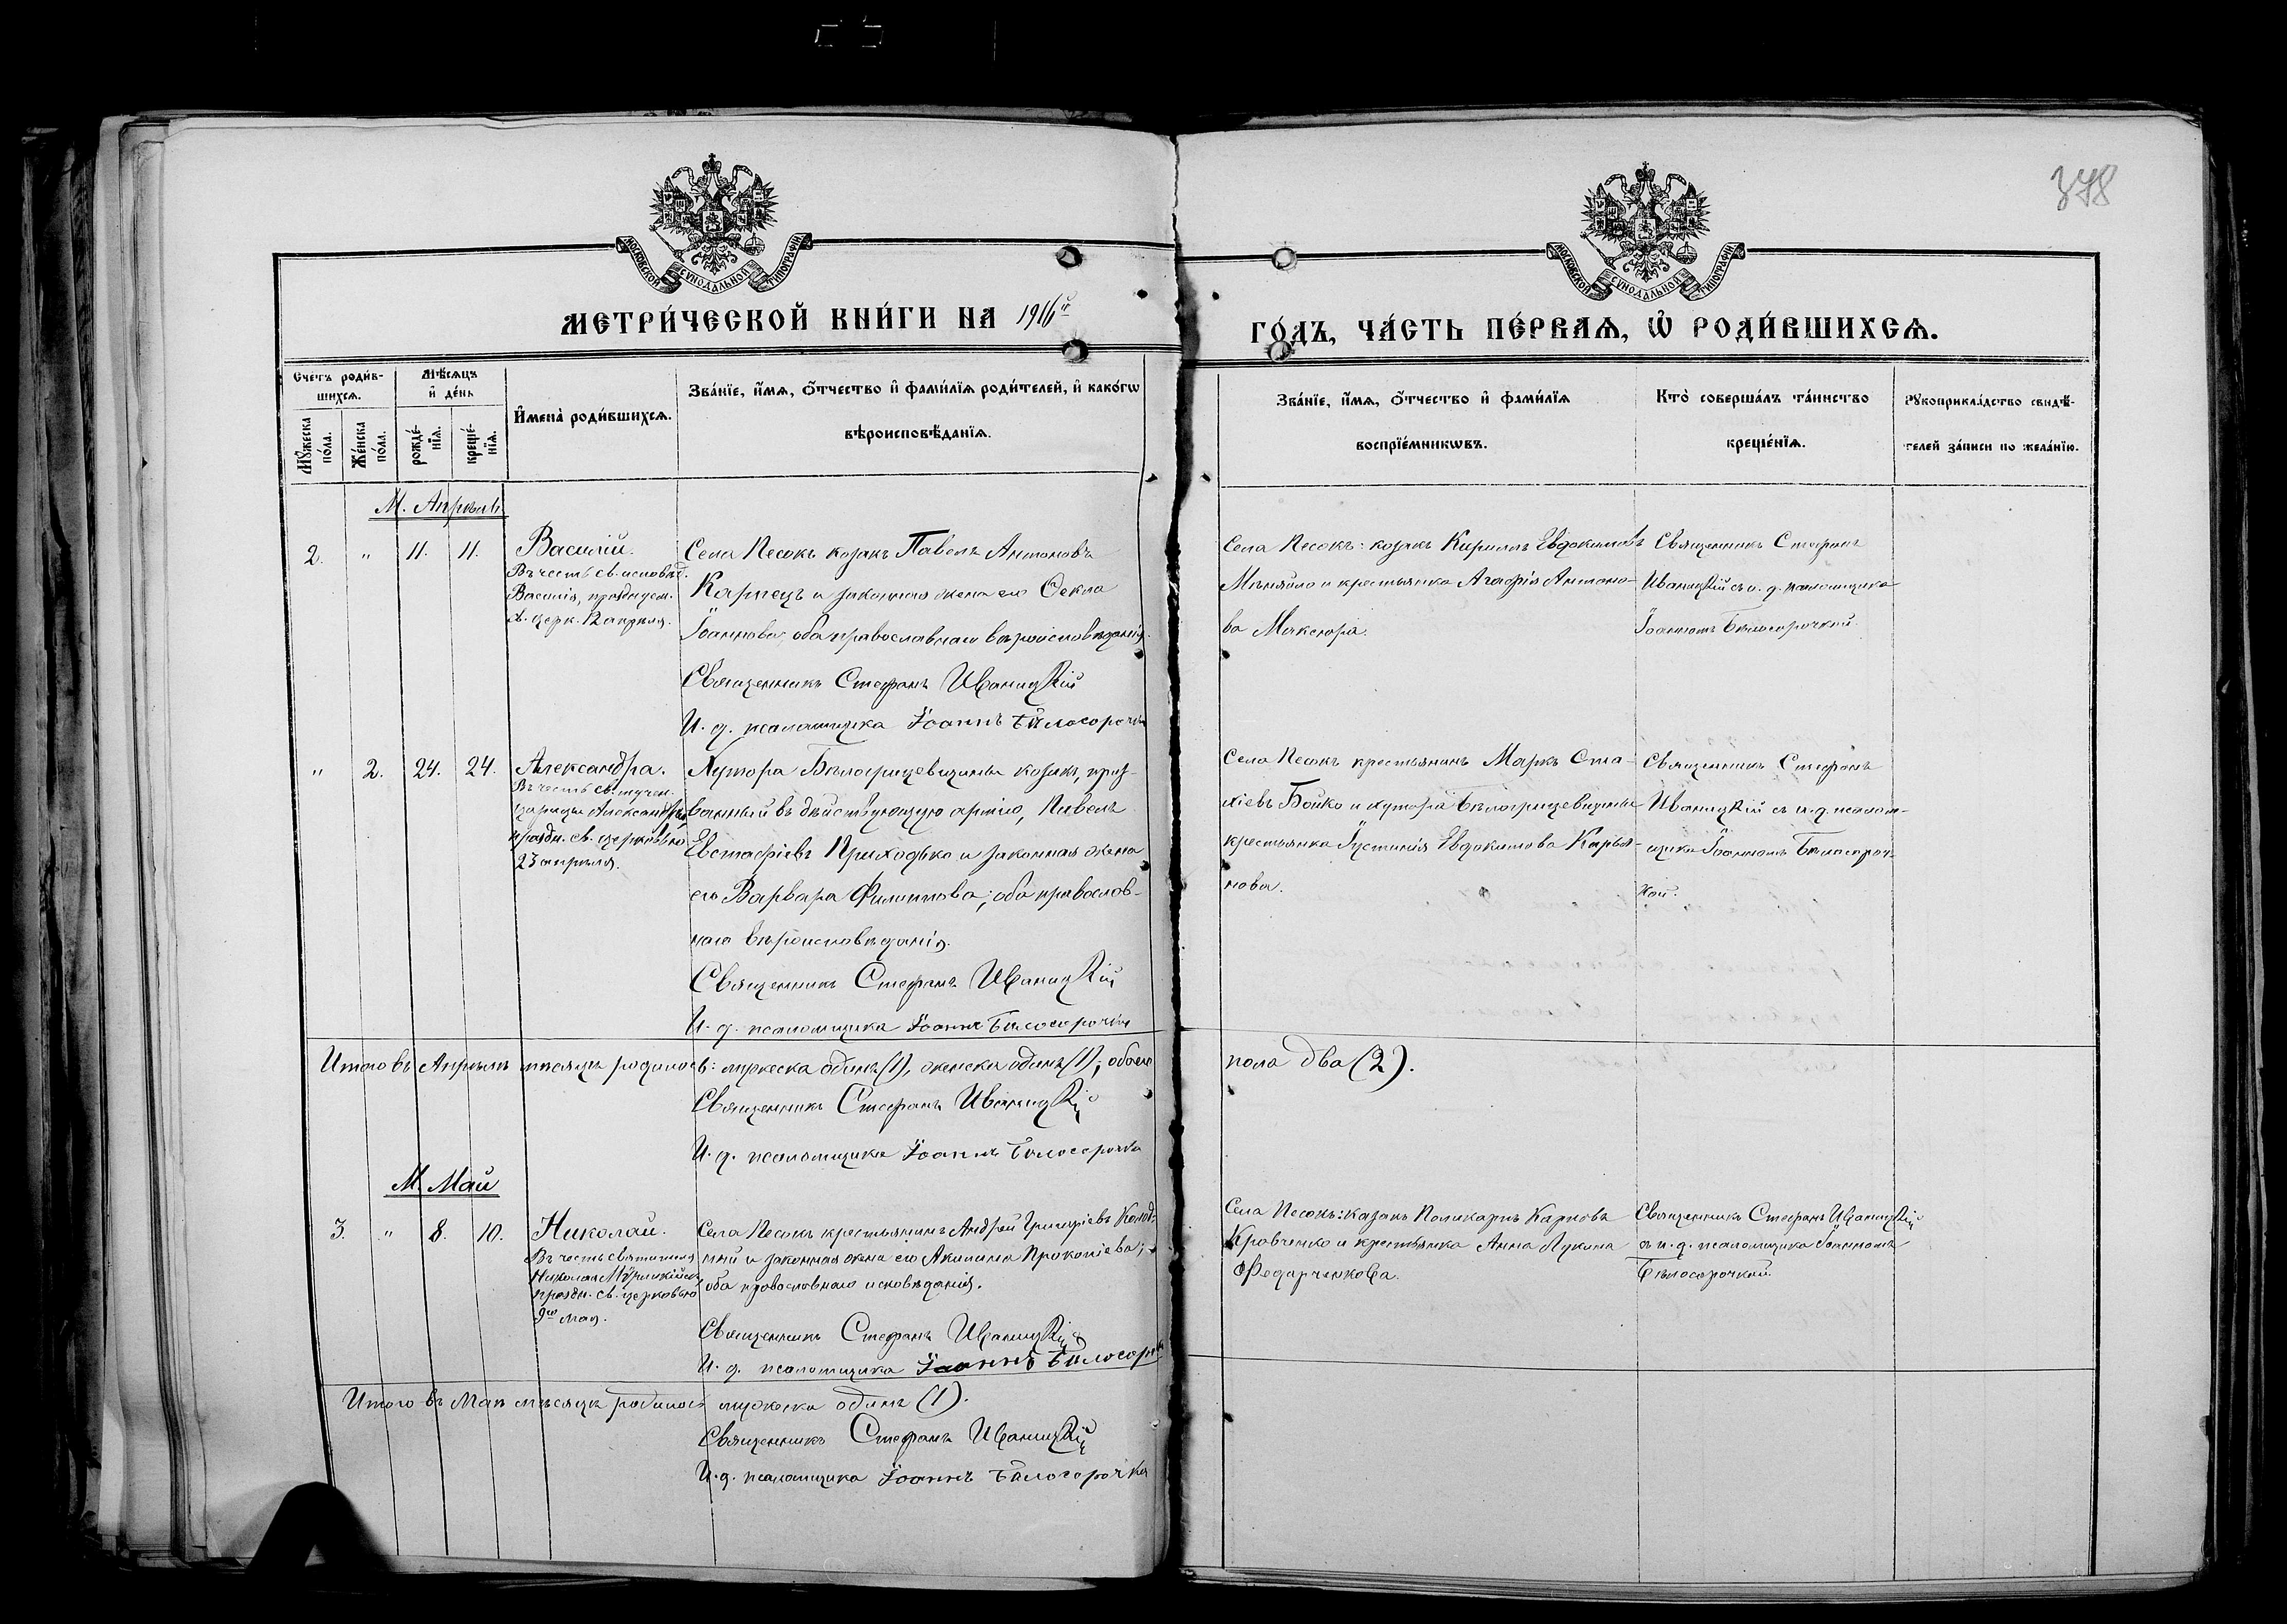 378
МОСКОВСКОЙ СѴНОДАЛЬНОЙ ТИПОГРАФІИ
МОСКОВСКОЙ СѴНОДАЛЬНОЙ ТИПОГРАФІИ
МЕТРИ́ЧЕСКОЙ КНИ́ГИ НА 1916й
ГО́ДЪ, ЧА́СТЬ ПЕ́РВАѦ, Ѡ҆ РОДИ́ВШИХСѦ.
Сче́тъ роди́в-
шихсѧ.
Мꙋ́жеска
по́ла.
Же́нска
по́ла.
Мѣ́сѧцъ
и҆ де́нь
рожде́-
нїѧ.
креще́-
нїѧ.
И҆мена̀ роди́вшихсѧ.
Зва́нїе, и҆́мѧ, ѻ҆́тчество и҆ фами́лїѧ роди́телей, и҆ како́гѡ
вѣроисповѣ́данїѧ.
Зва́нїе, и҆́мѧ, ѻ҆́тчество и҆ фами́лїѧ
воспрїе́мникѡвъ.
Кто̀ соверша́лъ та́инство
креще́нїѧ.
Рꙋкоприкла́дство свидѣ́-
телей за́писи по жела́нїю.
М. Апрѣль
2. " 11. 11.
Василій.
Въ честь св. исповѣд.
Василія, празднуем.
св. церк. 12 апрѣля.
Села Песокъ козакъ Павелъ Антоновъ
Карпецъ и законная жена его Ѳекла
Іоаннова; оба православнаго вѣроисповѣданія.
Священникъ Стефанъ Иваницкій
И. д. псаломщика Іоаннъ Бѣлосорочка
Села Песокъ: козакъ Кириллъ Евдокимовъ
Мѣняйло и крестьянка Агафія Антоно-
ва Максюра.
Священникъ Стефанъ
Иваницкій съ и. д. псаломщика
Іоанномъ Бѣлосорочкой
" 2. 24. 24.
Александра.
Въ честь св. мучен.
царицы Александры,
праздн. св. церковью
23 апрѣля.
Хутора Бѣлогрицевщины козакъ, приз-
ванный въ дѣйствующую армію, Павелъ
Евстафіевъ Приходько и законная жена
его Варвара Филиппова; оба православ-
наго вѣроисповѣданія.
Священникъ Стефанъ Иваницкій
И. д. псаломщика Іоаннъ Бѣлосорочка
Села Песокъ крестьянинъ Маркъ Ста-
хіевъ Бойко и хутора Бѣлогрицевщины
крестьянка Іустинія Евдокимова Карья-
нова.
Священникъ Стефанъ
Иваницкій съ и. д. псалом-
щика Іоанномъ Бѣлосороч-
кой.
Итого въ Апрѣлѣ мѣсяцѣ родилось: мужеска одинъ (1), женска одинъ (1); обоего
пола два (2).
Священникъ Стефанъ Иваницкій
И. д. псаломщика Іоаннъ Бѣлосорочка
М. Май
3. " 8. 10.
Николай.
Въ честь святителя
Николая Мѵрликійск.
праздн. св. церковью
9го мая.
Села Песокъ крестьянинъ Андрей Григоріевъ
и законная жена его Акилина Прокопіева;
оба православнаго исповѣданія.
Священникъ Стефанъ Иваницкій
И. д. псаломщика Іоаннъ Бѣлосорочка
Села Песокъ: казакъ Поликарпъ Карповъ
Кравченко и крестьянка Анна Лукина
Федарченкова.
Священникъ Стефанъ Иваницкій
съ и. д. псаломщика Іоанномъ
Бѣлосорочкой.
Итого въ Маѣ мѣсяцѣ родилось мужеска одинъ (1).
Священникъ Стефанъ Иваницкій
И. д. псаломщика Іоаннъ Бѣлосорочка